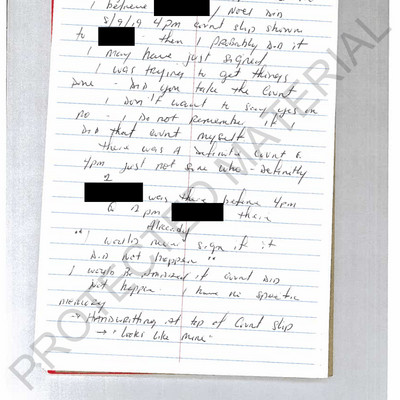 I believe / Noel did
8/9/19 4pm count slip shown
to then I probably did it
I may have just signed
I was trying to get things
done - Did you take the count
I don't want to say yes or
no - I do not remember if I
did that count myself
there was a definite count @
4pm just not sure who - definitely
was there before 4pm
@ 2 pm then
Already
"I would never sign if it
did not happen"
I would be if count did
not happen I have no specific
memory
→ Handwriting at top of count slip
→ "looks like mine"
PROTECTED MATERIAL